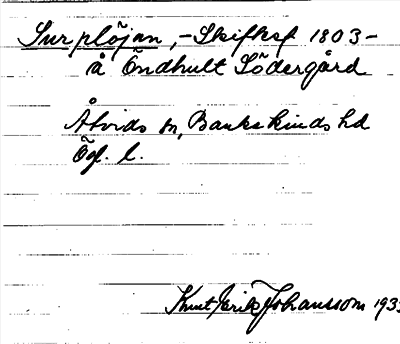 Surplöjan, - Skifksf 1803 -
å Öndhult Södergård
Åtvids sn, Bankekinds hd
Ögl. l.
Knut Erik Johansson 193